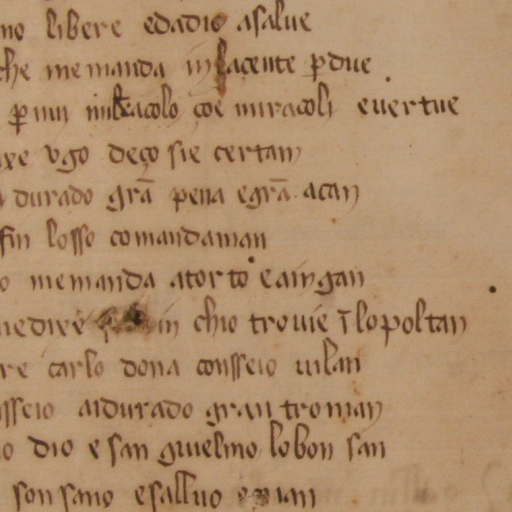 no libere edadio asalue
che memanda inlaçente pdue
p mii miracolo çoe miracoli evertue
xe vgo deço sie certan
durado grā pena egrā acan
fin losso comandaman
o memanda atorto eaingan
nedixe in chio trouie īlopoltan
re carlo dona consseio uilan
sseio aidurado gran troman
o dio esan guielmo lobon san
son sano esalluo